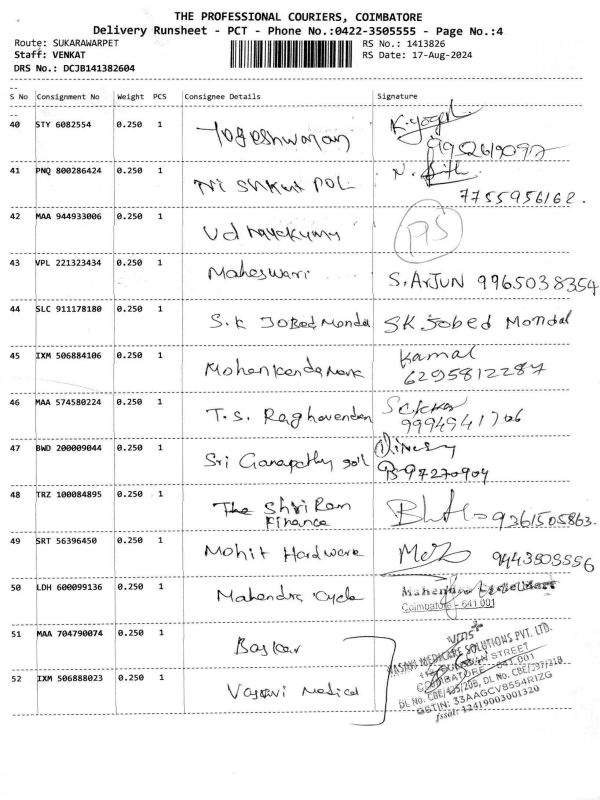 THE PROFESSIONAL COURIERS, COIMBATORE
Delivery Runsheet - PCT - Phone No.:0422-3505555 - Page No.:4
Route: SUKARAWARPET RS No.: 1413826
Staff: VENKAT RS Date: 17-Aug-2024
DRS No.: DCJB141382604
--
S No Consignment No Weight PCS Consignee Details Signature
--
40 STY 6082554 0.250 1 Yogeshwaran K.yogesh
41 PNQ 800286424 0.250 1
7755956162.
42 MAA 944933006 0.250 1 Udhayakumar
43 VPL 221323434 0.250 1 Maheswari S.ArJUN 9965038354
44 SLC 911178180 0.250 1 S.k JOBed Mondal SK Jobed Mondal
45 IXM 506884106 0.250 1 Kamal
6295812287
46 MAA 574580224 0.250 1 T.S. Raghavendran
47 BWD 200009044 0.250 1 Sri Ganapathy
48 TRZ 100084895 0.250 1 The Shri Ram 9361505863.
Finance
49 SRT 56396450 0.250 1 Mohit Hardware 9443505556
50 LDH 600099136 0.250 1 Mahendra Cycle Mahendra Cycle Mart
Coimbatore - 641 001
51 MAA 704790074 0.250 1 Baskar
52 IXM 506888023 0.250 1 Vasavi Medical
vms
VASAVI MEDICARE SOLUTIONS PVT. LTD.
STREET
COIMBATORE - 641 001
DL No. CBE/435/20B, DL No. CBE/397/21B
GSTIN: 33AAGCV8554R1ZG
fssai: 12419003001320